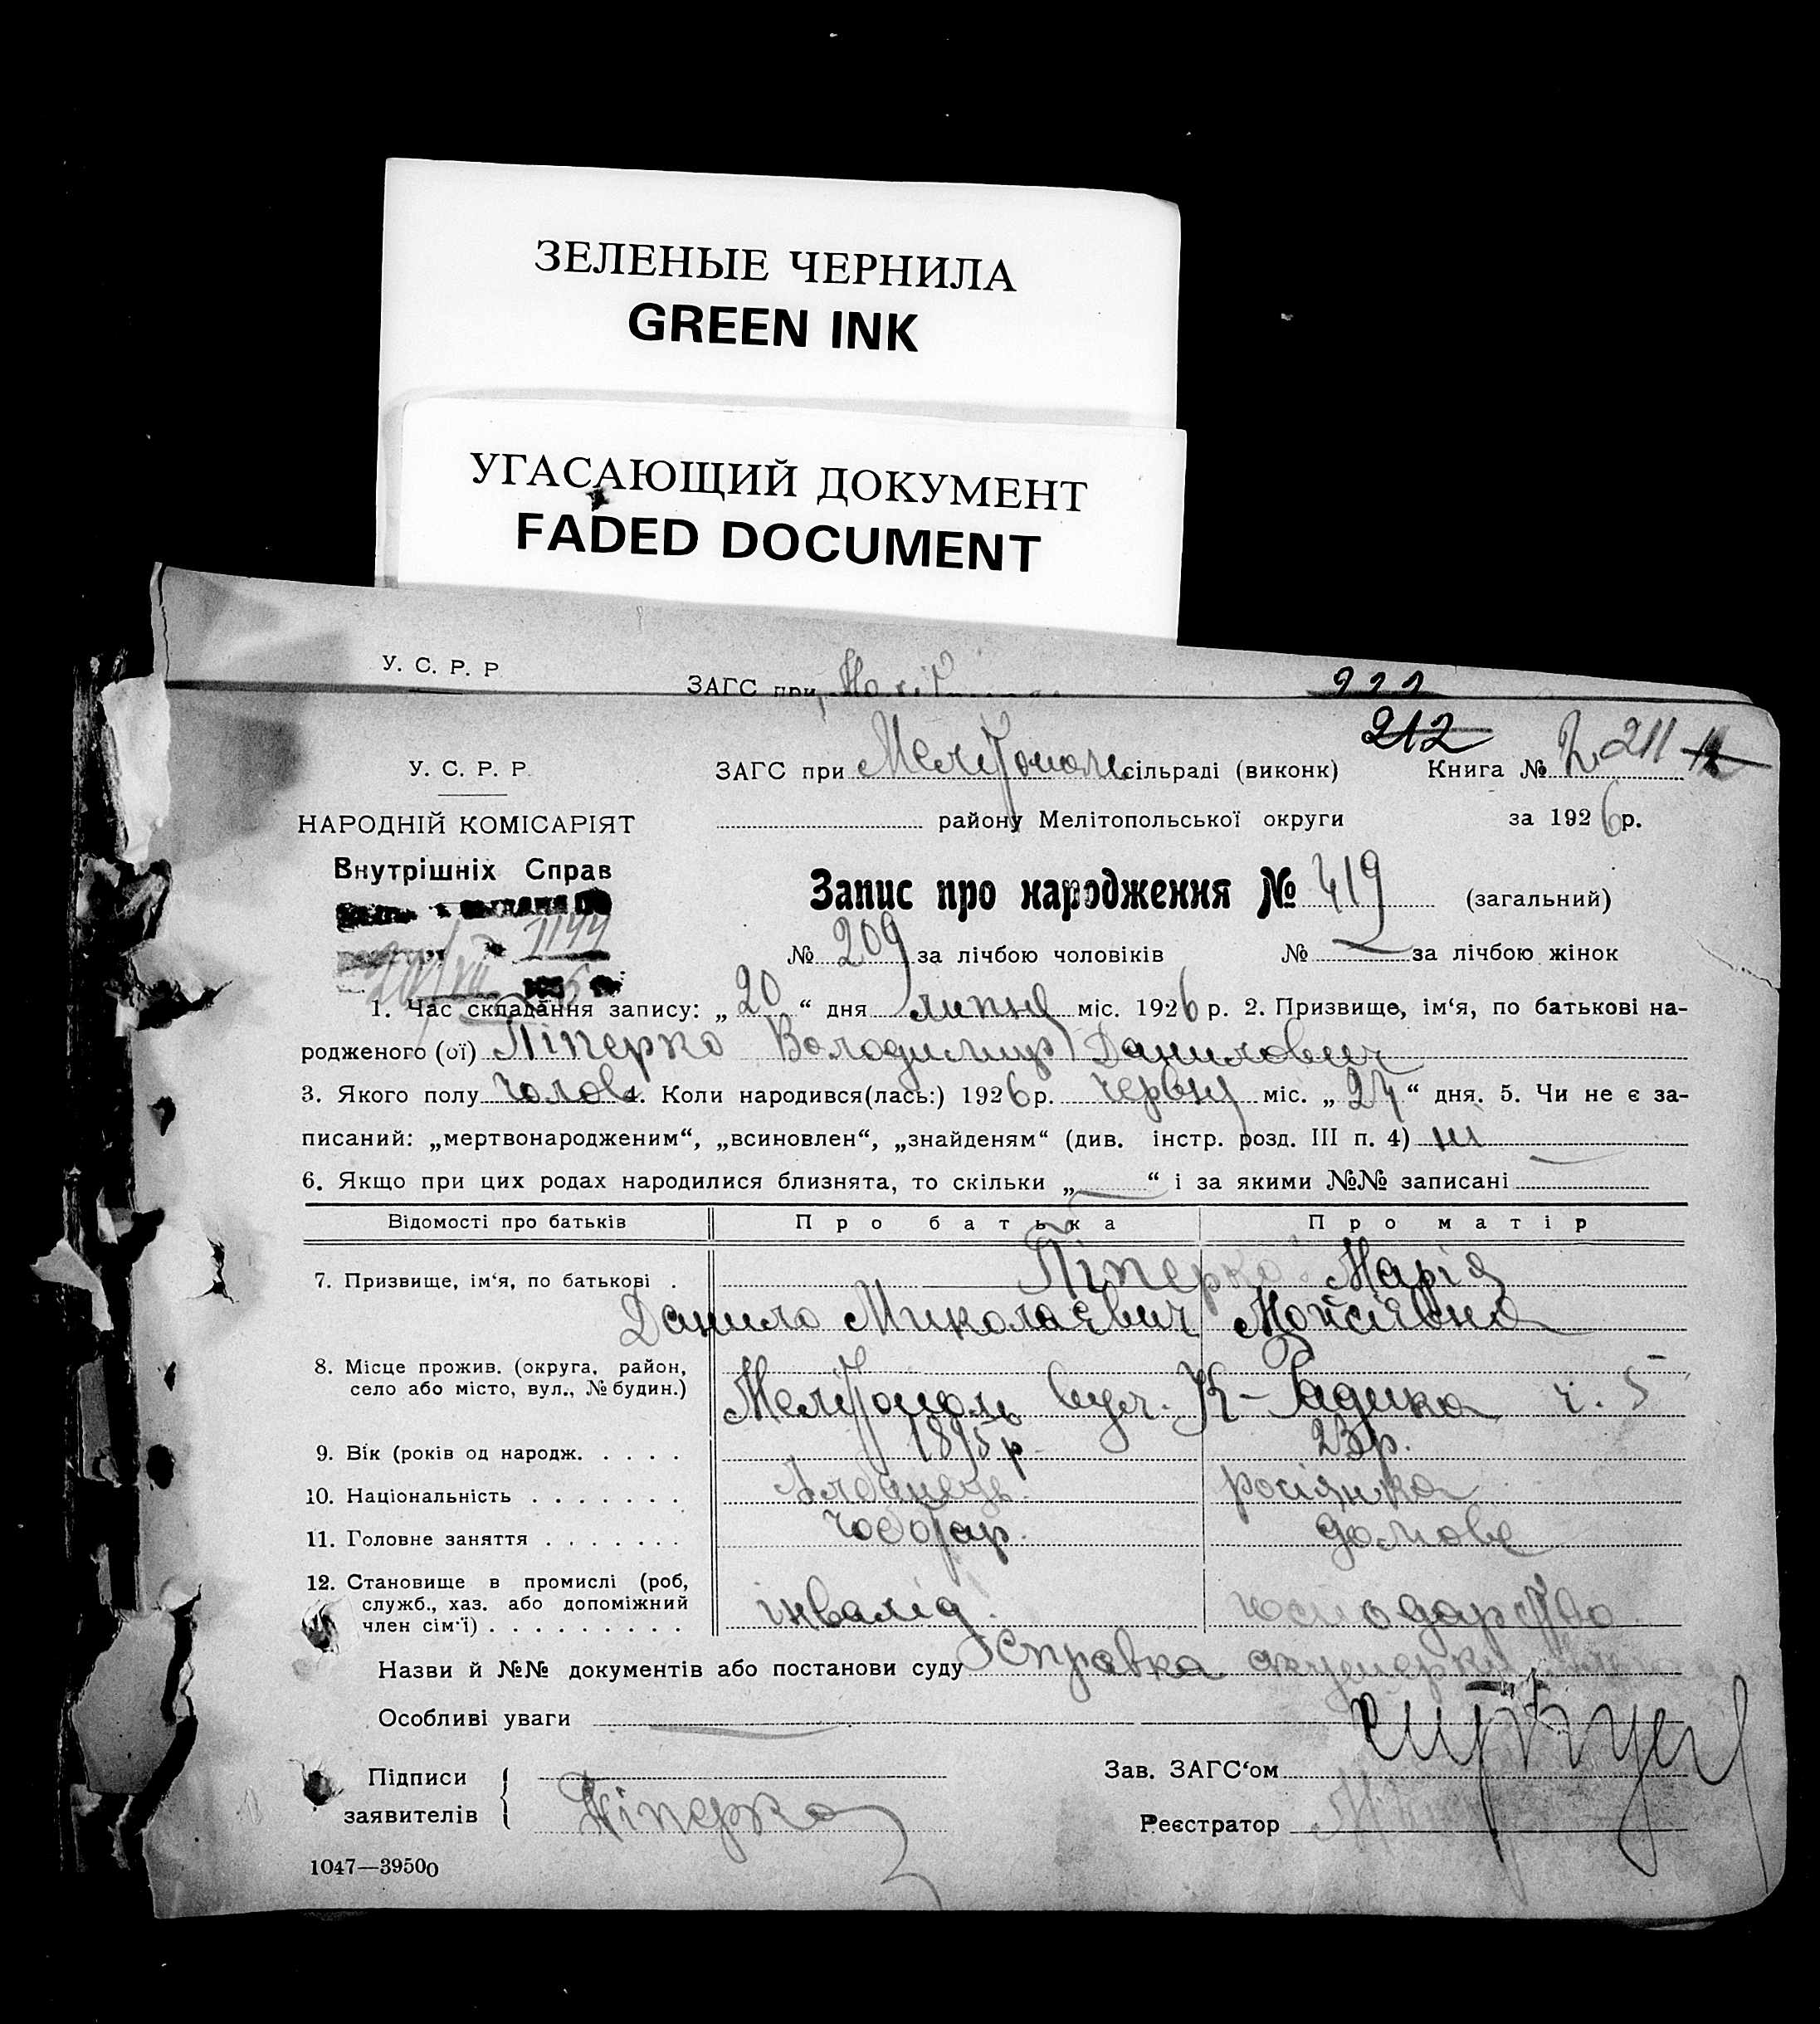 ЗЕЛЕНЫЕ ЧЕРНИЛА
GREEN INK
УГАСАЮЩИЙ ДОКУМЕНТ
FADED DOCUMENT
У. С. Р. Р
ЗАГС при
222
212
У. С. Р. Р.
ЗАГС при Мелітополь сільраді (виконк)
Книга № 2 211
НАРОДНІЙ КОМІСАРІЯТ
району Мелітопольської округи
за 1926 р.
Внутрішніх Справ
Запис про народження № 419 (загальний)
№ 209 за лічбою чоловіків № — за лічбою жінок
1. Час складання запису: „20“ дня липня міс. 1926 р. 2. Призвище, ім‘я, по батькові на-
родженого (ої) Піперко Володимир Данилович
3. Якого полу чолов 4. Коли народився(лась:) 1926 р. червня міс. „24“ дня. 5. Чи не є за-
писаний: „мертвонародженим“, „всиновлен“, „знайденям“ (див. інстр. розд. III п. 4) ні
6. Якщо при цих родах народилися близнята, то скільки „—“ і за якими №№ записані
Відомості про батьків Про батька Про матір
7. Призвище, ім‘я, по батькові . Піперко Марія
Данило Миколаєвич Мойсіївна
8. Місце прожив. (округа, район,
село або місто, вул., № будин.) Мелітополь вул. К-Радика ч. 5
9. Вік (років од народж. . . . . 1895 р 23 р.
10. Національність . . . . . . . Албанець росіянка
11. Головне заняття . . . . . . . чоботар. домове
12. Становище в промислі (роб,
служб., хаз. або допоміжний
член сім‘ї) . . . . . . . . . інвалід. господарство
Назви й №№ документів або постанови суду Справка акушерки
Особливі уваги —
Підписи
заявителів Піперко
Зав. ЗАГС‘ом
Реєстратор
1047—39500